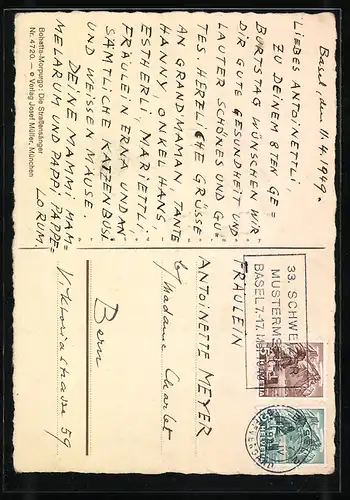 Basel, den 11.4.1949.
LIEBES ANTOINETTLI,
ZU DEINEM 8TEN GE=
BURTSTAG WÜNSCHEN WIR
DIR GUTE GESUNDHEIT UND
LAUTER SCHÖNES UND GU=
TES HERZLICHE GRÜSSE
AN GRANDMAMAN, TANTE
HANNY, ONKEL HANS,
ESTHERLI, MARIETTLI
FRÄULEIN ERNA UND AN
SÄMTLICHE KATZENBUSI
UND WEISSEN MÄUSE.
DEINE MAMMI MAM=
MELARUM UND PAPPI, PAPPE=
LORUM.
Bohatta-Morpurgo: Die Straßensänger
Nr. 4720. — © Verlag Josef Müller, München
33. SCHWEIZER
MUSTERMESSE
BASEL 7.-17. MAI
FRÄULEIN
ANTOINETTE MEYER
c/ Madame Charlet
Bern
Viktoriastrasse 59